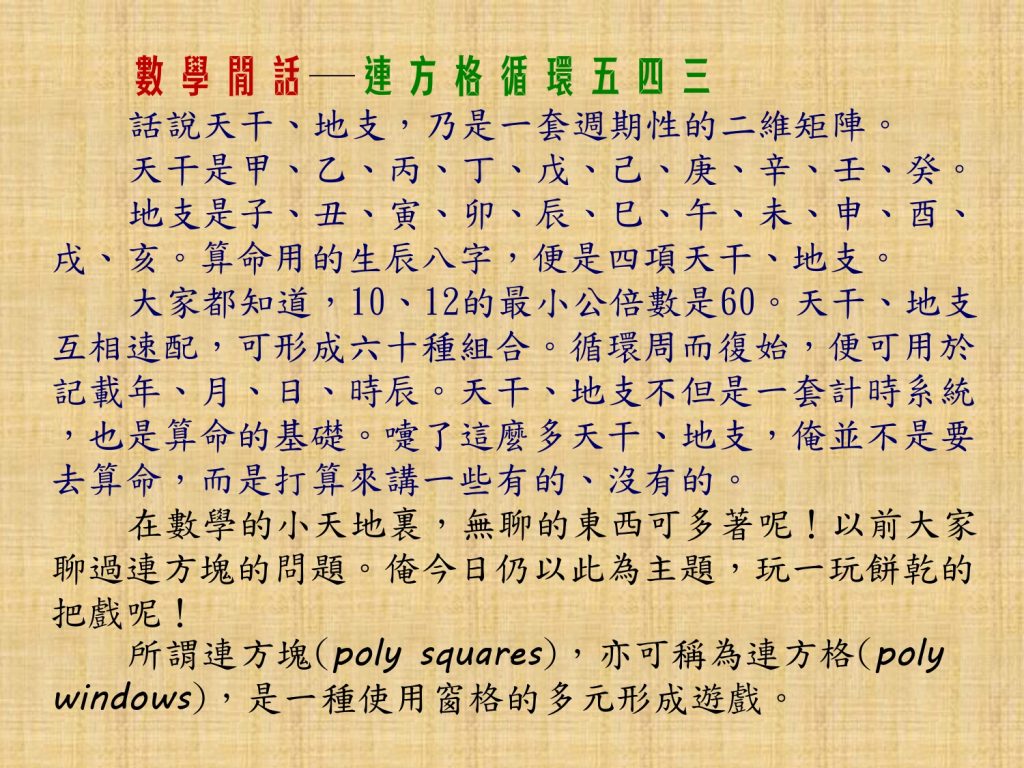 數學閒話─連方格循環五四三
話說天干、地支，乃是一套週期性的二維矩陣。
天干是甲、乙、丙、丁、戊、己、庚、辛、壬、癸。
地支是子、丑、寅、卯、辰、巳、午、未、申、酉、
戌、亥。算命用的生辰八字，便是四項天干、地支。
大家都知道，10、12的最小公倍數是60。天干、地支
互相速配，可形成六十種組合。循環周而復始，便可用於
記載年、月、日、時辰。天干、地支不但是一套計時系統
，也是算命的基礎。嚏了這麼多天干、地支，俺並不是要
去算命，而是打算來講一些有的、沒有的。
在數學的小天地裏，無聊的東西可多著呢！以前大家
聊過連方塊的問題。俺今日仍以此為主題，玩一玩餅乾的
把戲呢！
所謂連方塊(poly squares)，亦可稱為連方格(poly
windows)，是一種使用窗格的多元形成遊戲。